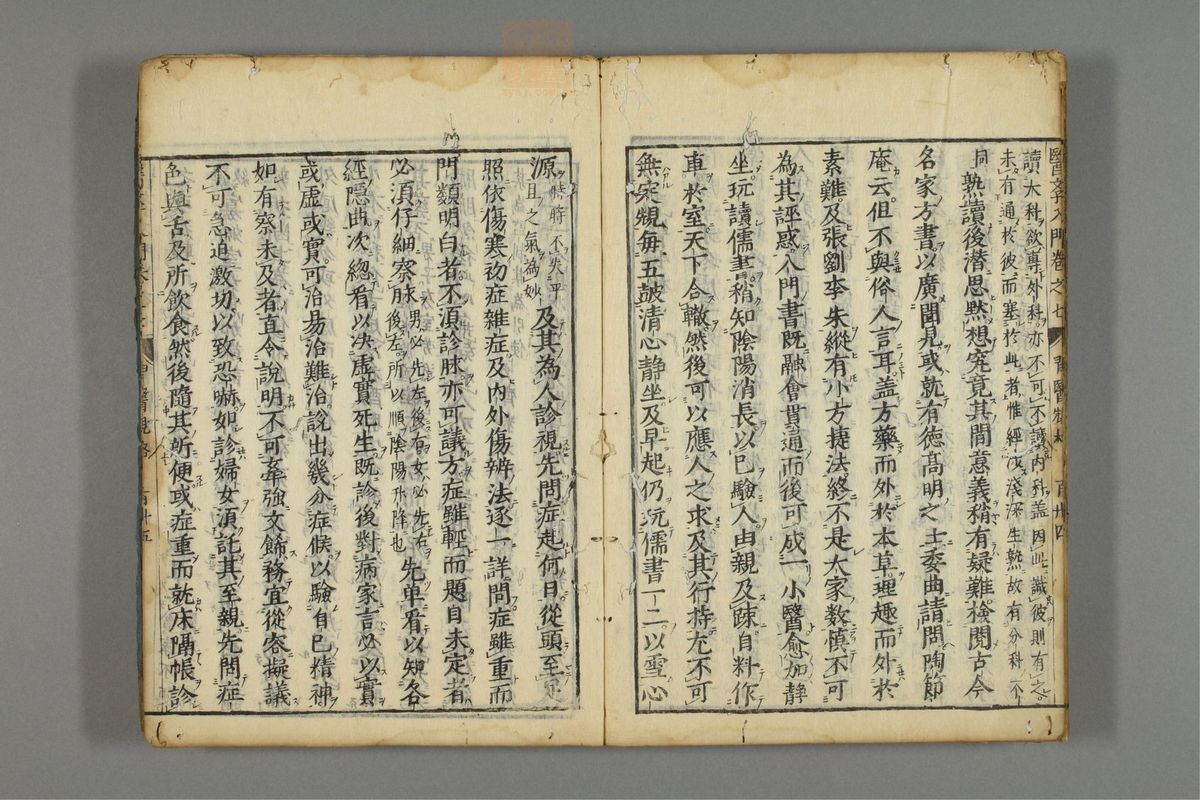 醫學入門卷之七
習醫規格
百卅四
讀大科欲專外科亦不可不讀內科盖因此識彼則有之
未有通於彼而塞於此者惟經歷淺深生熟故有分科不
同熟讀後潛思默想究竟其間意義稍有疑難檢閱古今
名家方書以廣聞見或就有德高明之士委曲請問陶節
庵云但不與俗人言耳盖方藥而外於本草理趣而外於
素難及張劉李朱縱有小方捷法終不是大家数慎不可
為其誣惑入門書既融會貫通而後可成一小醫愈加靜
坐玩讀儒書稍知陰陽消長以已驗人由親及疎自料作
車於室天下合轍然後可以應人之求及其行持尤不可
無定規每五鼓清心靜坐及早起仍玩儒書一二以雪心
源時將不失平
旦之氣為妙
及其為人診視先問症起何日從頭至足
照依傷寒初症雜症及內外傷辨法逐一詳問症雖重而
門類明白者不須診脉亦可議方症雖輕而題目未定者
必須仔細察脉男必先左後右女必先右
後左所以順陰陽升降也
先单看以知各
經隱曲次總看以决虛實死生既診後對病家言必以實
或虛或實可治易治難治說出幾分症候以驗自已精神
如有察未及者直令說明不可牽強文餙務宜從容擬議
不可急迫激切以致恐嚇如診婦女須託其至親先問症
色與舌及所飲食然後隨其所便或症重而就床隔帳診
百卅五